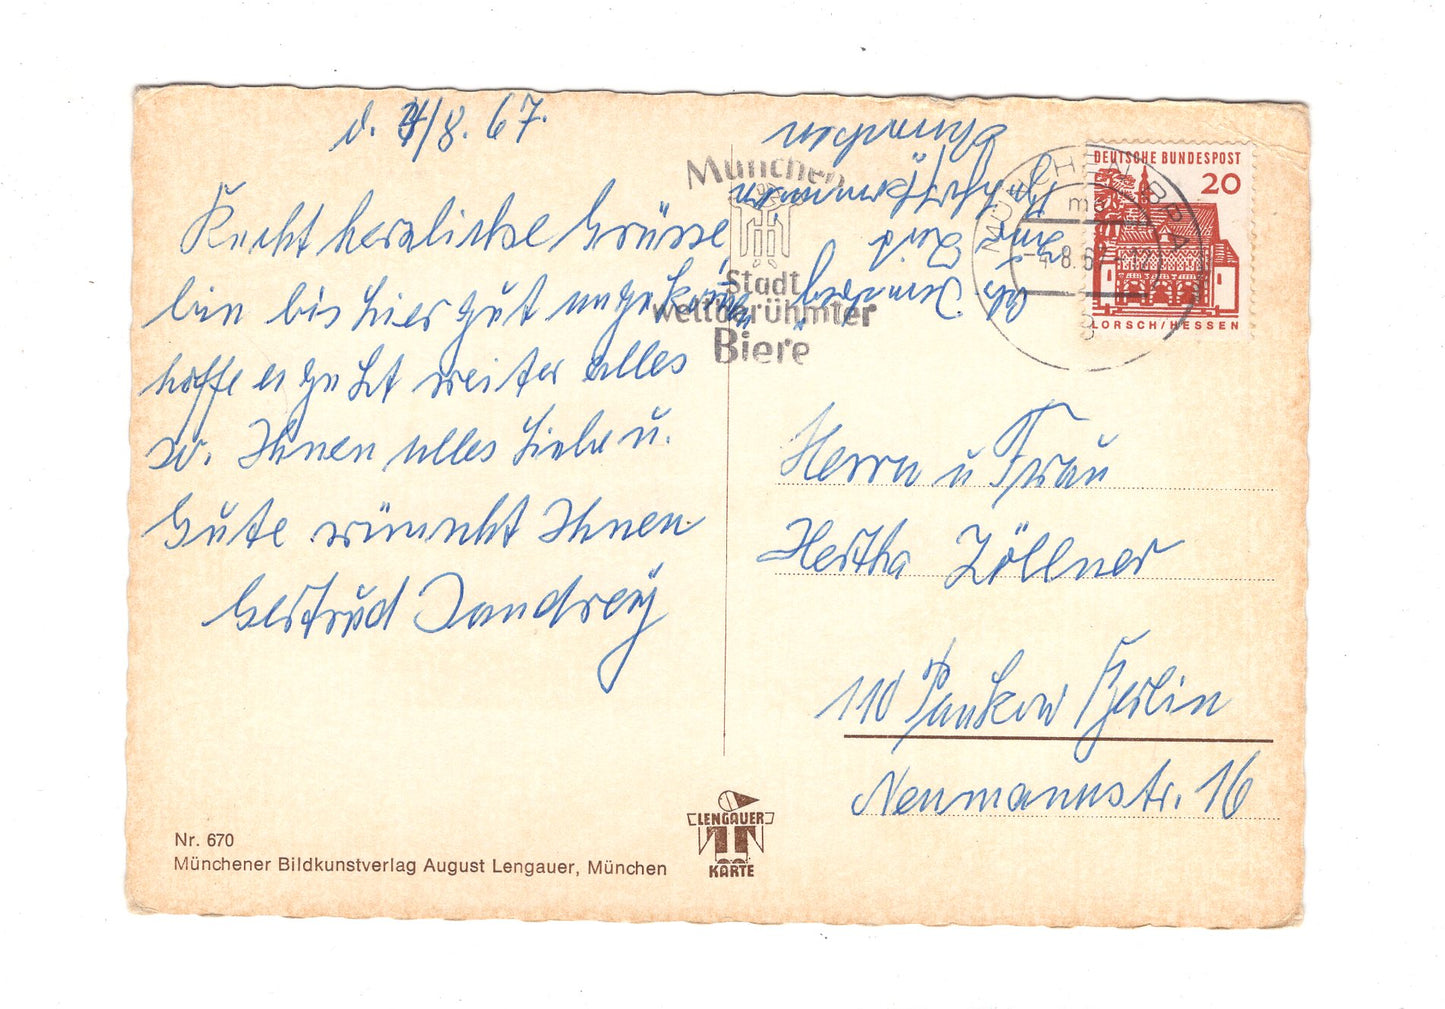 d. 4/8. 67.
Recht herzliche Grüsse
bin bis hier gut angekommen
hoffe es geht weiter alles
so. Ihnen alles Liebe u.
Gute wünscht Ihnen
Gertrud Jandrey
München
Stadt
weltberühmter
Biere
MÜNCHEN BPA
-4.8.67
DEUTSCHE BUNDESPOST
20
LORSCH/HESSEN
Herrn u Frau
Hertha Zöllner
110 Pankow Berlin
Neumannstr. 16
Nr. 670
Münchener Bildkunstverlag August Lengauer, München
LENGAUER
KARTE